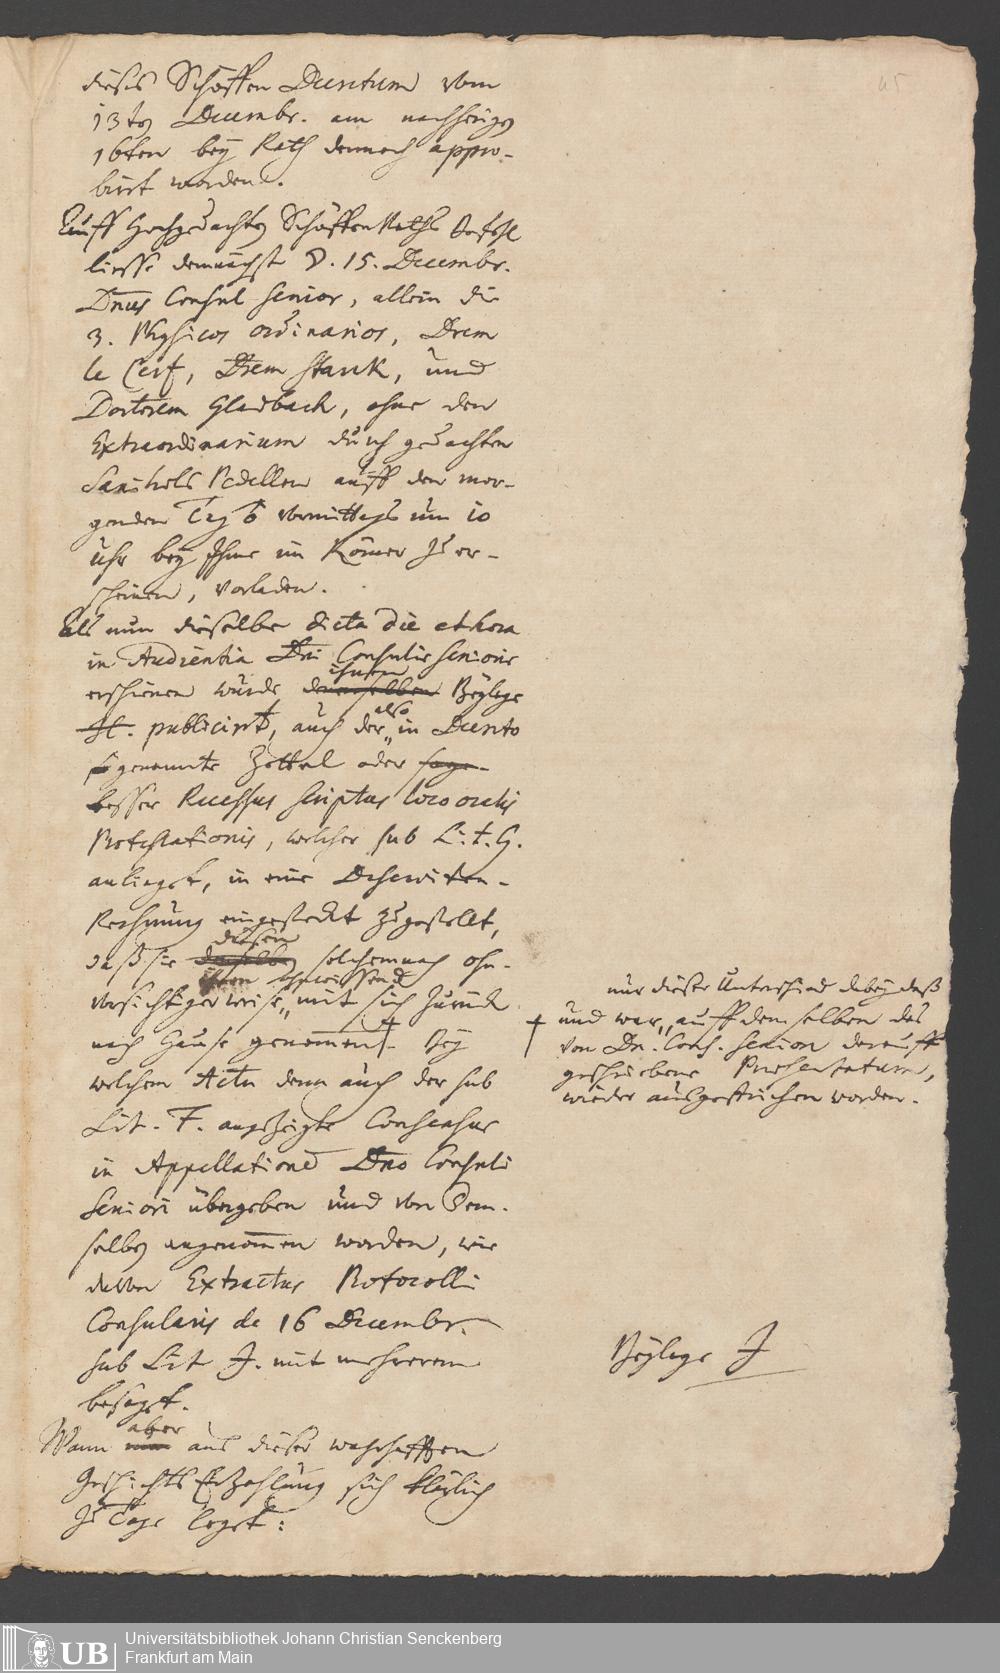 45
dieses Schöffen Decretum vom
13ten Decembr. am nachherigen
16ten bey Rath dennoch appro-
birt worden.
Auff Hochgedachten Schöffen Raths Befehl
liesse demnächst d. 15. Decembr.
Dnus Consul Senior, allein die
3. Physicos ordinarios, Drem
le Cerf, Drem Starck, und
Doctorem Gladbach, ohne den
Extraordinarium durch gedachten
Sanitaets Pedellen auff den mor-
genden Tag vormittags um 10
Uhr bey Ihme im Römer zu er-
scheinen, vorladen.
Als nun dieselbe dicta die et hora
in Audientia Dni Consulis Senioris
erschienen wurde denenselben ihnen Beylage
H. publicirt, auch der also in Decreto
genannte Zettel oder
besser Recessus scriptus loco oralis
Protestationis, welcher sub Lit. G.
anliegt, in eine Deserviten-
Rechnung eingesteckt zugestellt,
daß sie dieselbe diesen solchemnach ohn-
vorsichtiger weise, mit sich zurück
nach Hause genommen. † Bey
welchem Actu dann auch der sub
Lit. F. angezeigte Consensus
in Appellatione Dno Consuli
Seniori übergeben und von Dem-
selben angenommen worden, wie
davon Extractus Protocolli
Consularis de 16 Decembr.
sub Lit J. mit mehrerem
besagt.
Wann nun aber aus dieser wahrhafften
Geschichts Erzehlung sich klärlich
zu Tage leget:
nur dieser Unterschied dabey daß
† und war, auff demselben das
von Dn. Cons. Senior darauff
geschriebene Praesentatum,
wieder ausgestrichen worden.
Beylage J
UB
Universitätsbibliothek Johann Christian Senckenberg
Frankfurt am Main